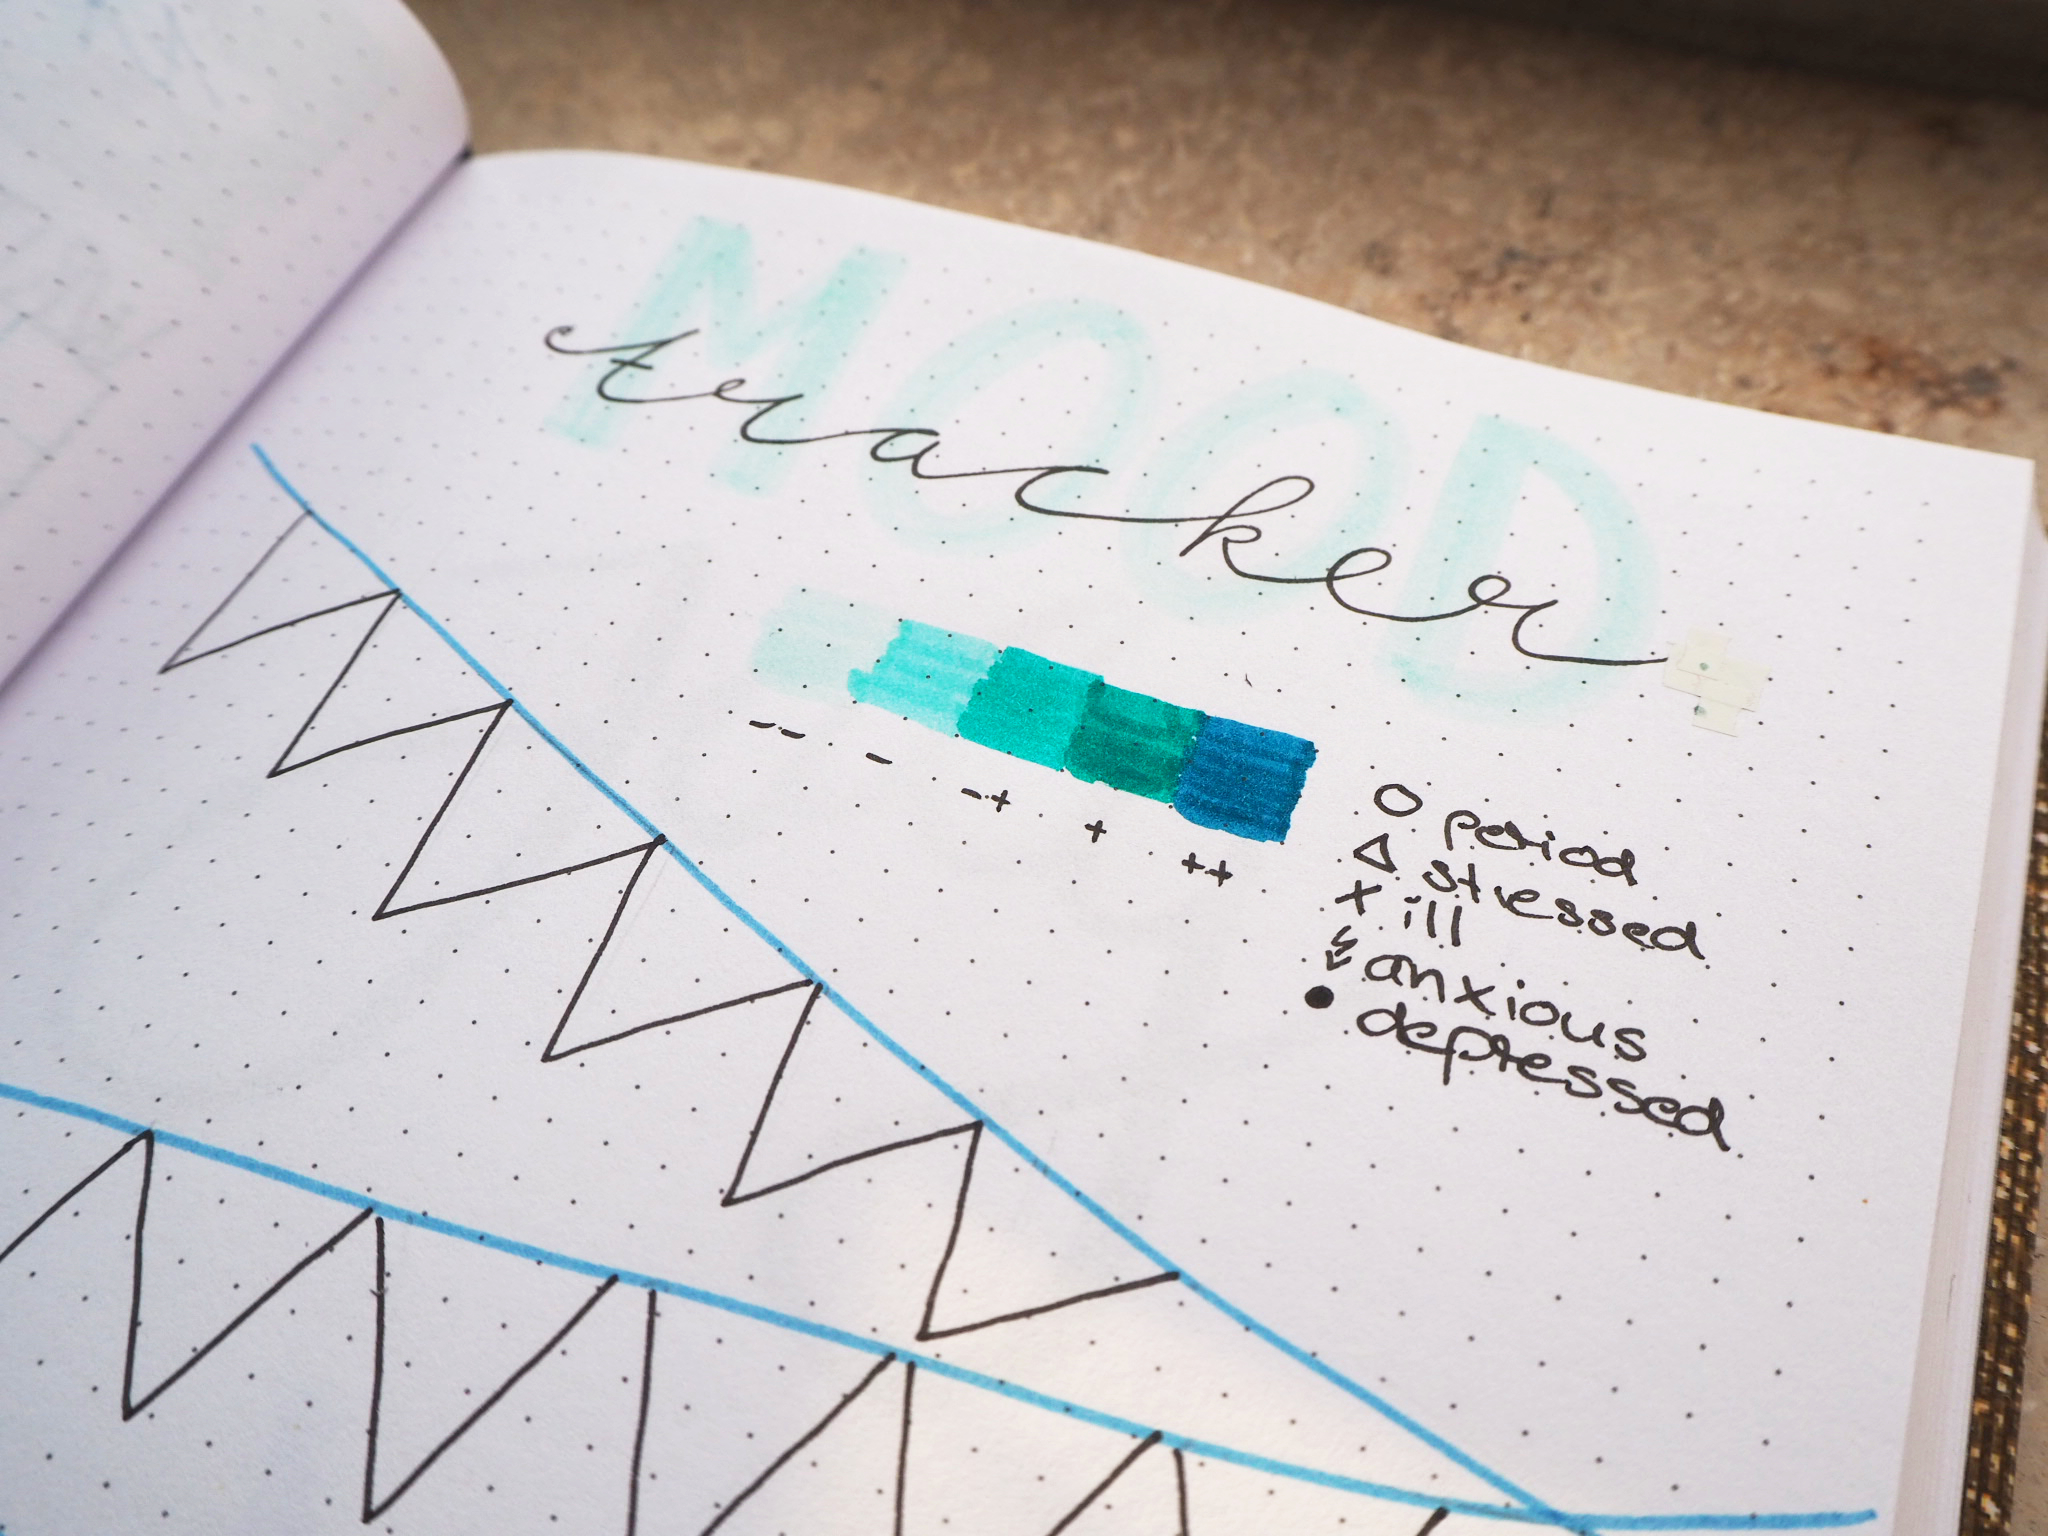 MOOD
tracker
-- - -+ + ++
O period
△ stressed
x ill
anxious
● depressed